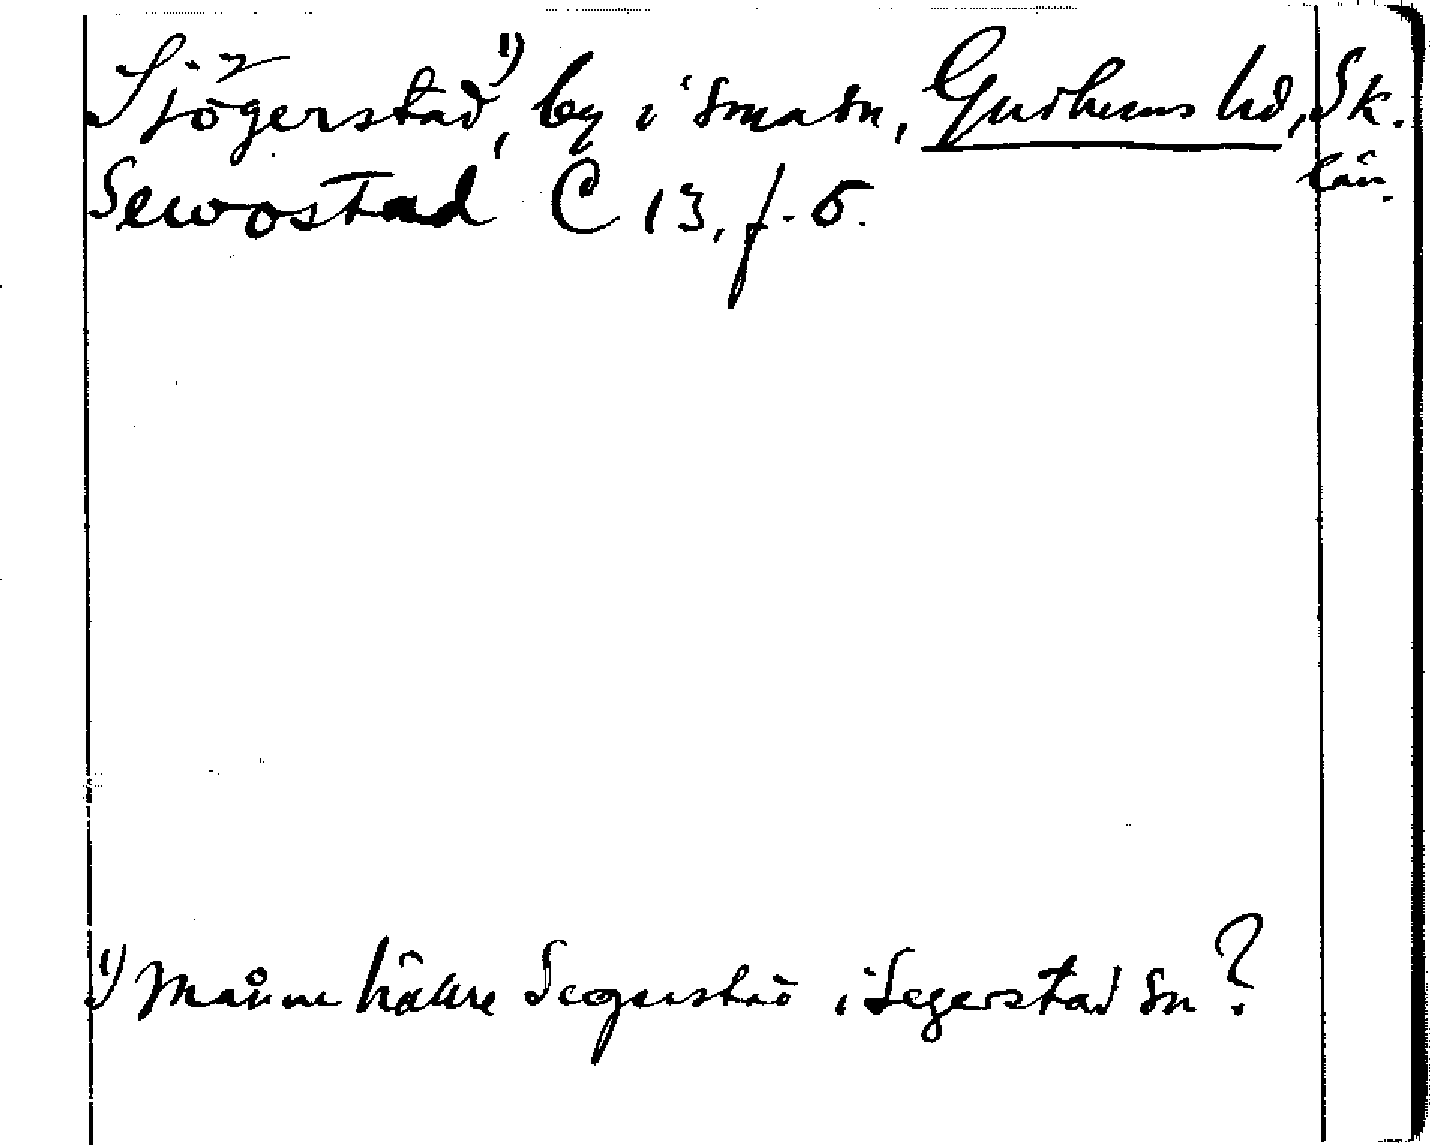 Sjögerstad¹⁾, by i sma sn, Gudhems hd, Sk.
län.
Sewostad C 13, f. 5.
¹⁾ Månne hällre Segerstad i Segerstad sn?